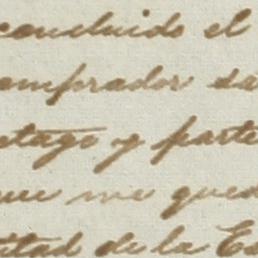 concluido el
omprador sa
etazo y parte
ue me qued
itad de la Es